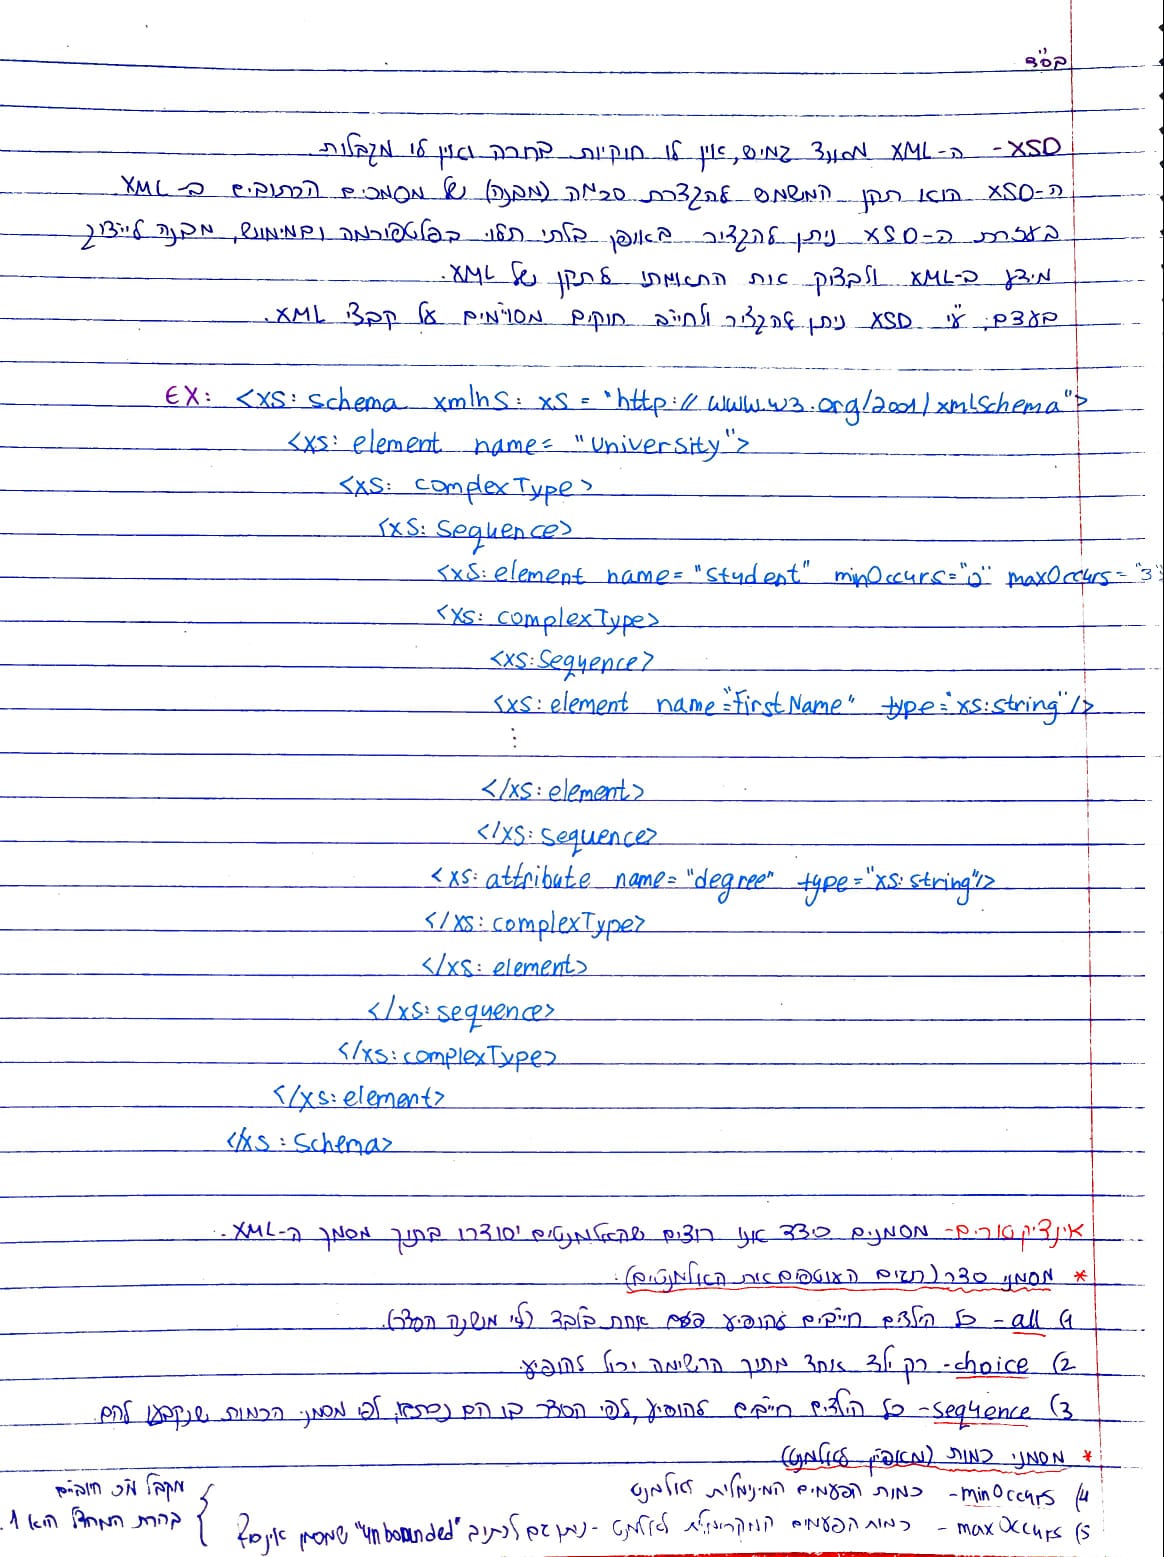 בס"ד
XSD - ה-XML מאוד גמיש, אין לו חוקיות בחרה ואין לו מגבלות.
ה-XSD הוא תקן המשמש להגדרת סכמה (מבנה) של מסמכים הכתובים ב-XML
בעזרת ה-XSD ניתן להגדיר באופן בלתי תלוי בפלטפורמה ובמימוש, מבנה לייצוג
מידע ב-XML ולבדוק את התאמתו לתקן של XML.
בעצם, ע"י XSD ניתן להגדיר ולחייב חוקים מסויימים על קבצי XML.
EX: <xs: schema xmlns: xs = "http://www.w3.org/2001/xmlSchema">
<xs: element name= "University">
<xs: complexType>
<xs: sequence>
<xs: element name= "student" minOccurs="0" maxOccurs= "3">
<xs: complexType>
<xs: Sequence>
<xs: element name="firstName" type="xs:string"/>
⋮
</xs: element>
</xs: sequence>
<xs: attribute name= "degree" type="xs: string"/>
</xs: complexType>
</xs: element>
</xs: sequence>
</xs: complexType>
</xs: element>
</xs: Schema>
אינדיקטורים- מסמנים כיצד אנו רוצים שהאלמנטים יסודרו בתוך מסמך ה-XML.
* מסמני סדר (תגים העוטפים את האלמנטים):
1) all - כל הילדים חייבים להופיע פעם אחת בלבד (לא משנה הסדר).
2) choice - רק ילד אחד מתוך הרשימה יכול להופיע.
3) sequence - כל הילדים חייבים להופיע, לפי הסדר בו הם נכתבו, לפי מסמני הכמות שנקבעו להם.
* מסמני כמות (מאפיין לאלמנט)
4) minOccurs - כמות הפעמים המינימלית לאלמנט
5) maxOccurs - כמות הפעמים המקסימלית לאלמנט - ניתן גם לכתוב "unbounded" שמסמן אינסוף
חובביים
ברירת המחדל היא 1.